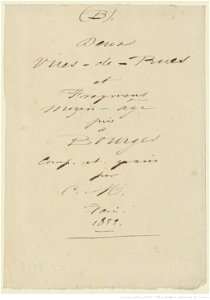 (B).
Deux
Vues-de-Rues
et
Fragmens
moyen-âge
pris
à
Bourges
Comp. et gravés
par
C. M.
Paris.
1852.